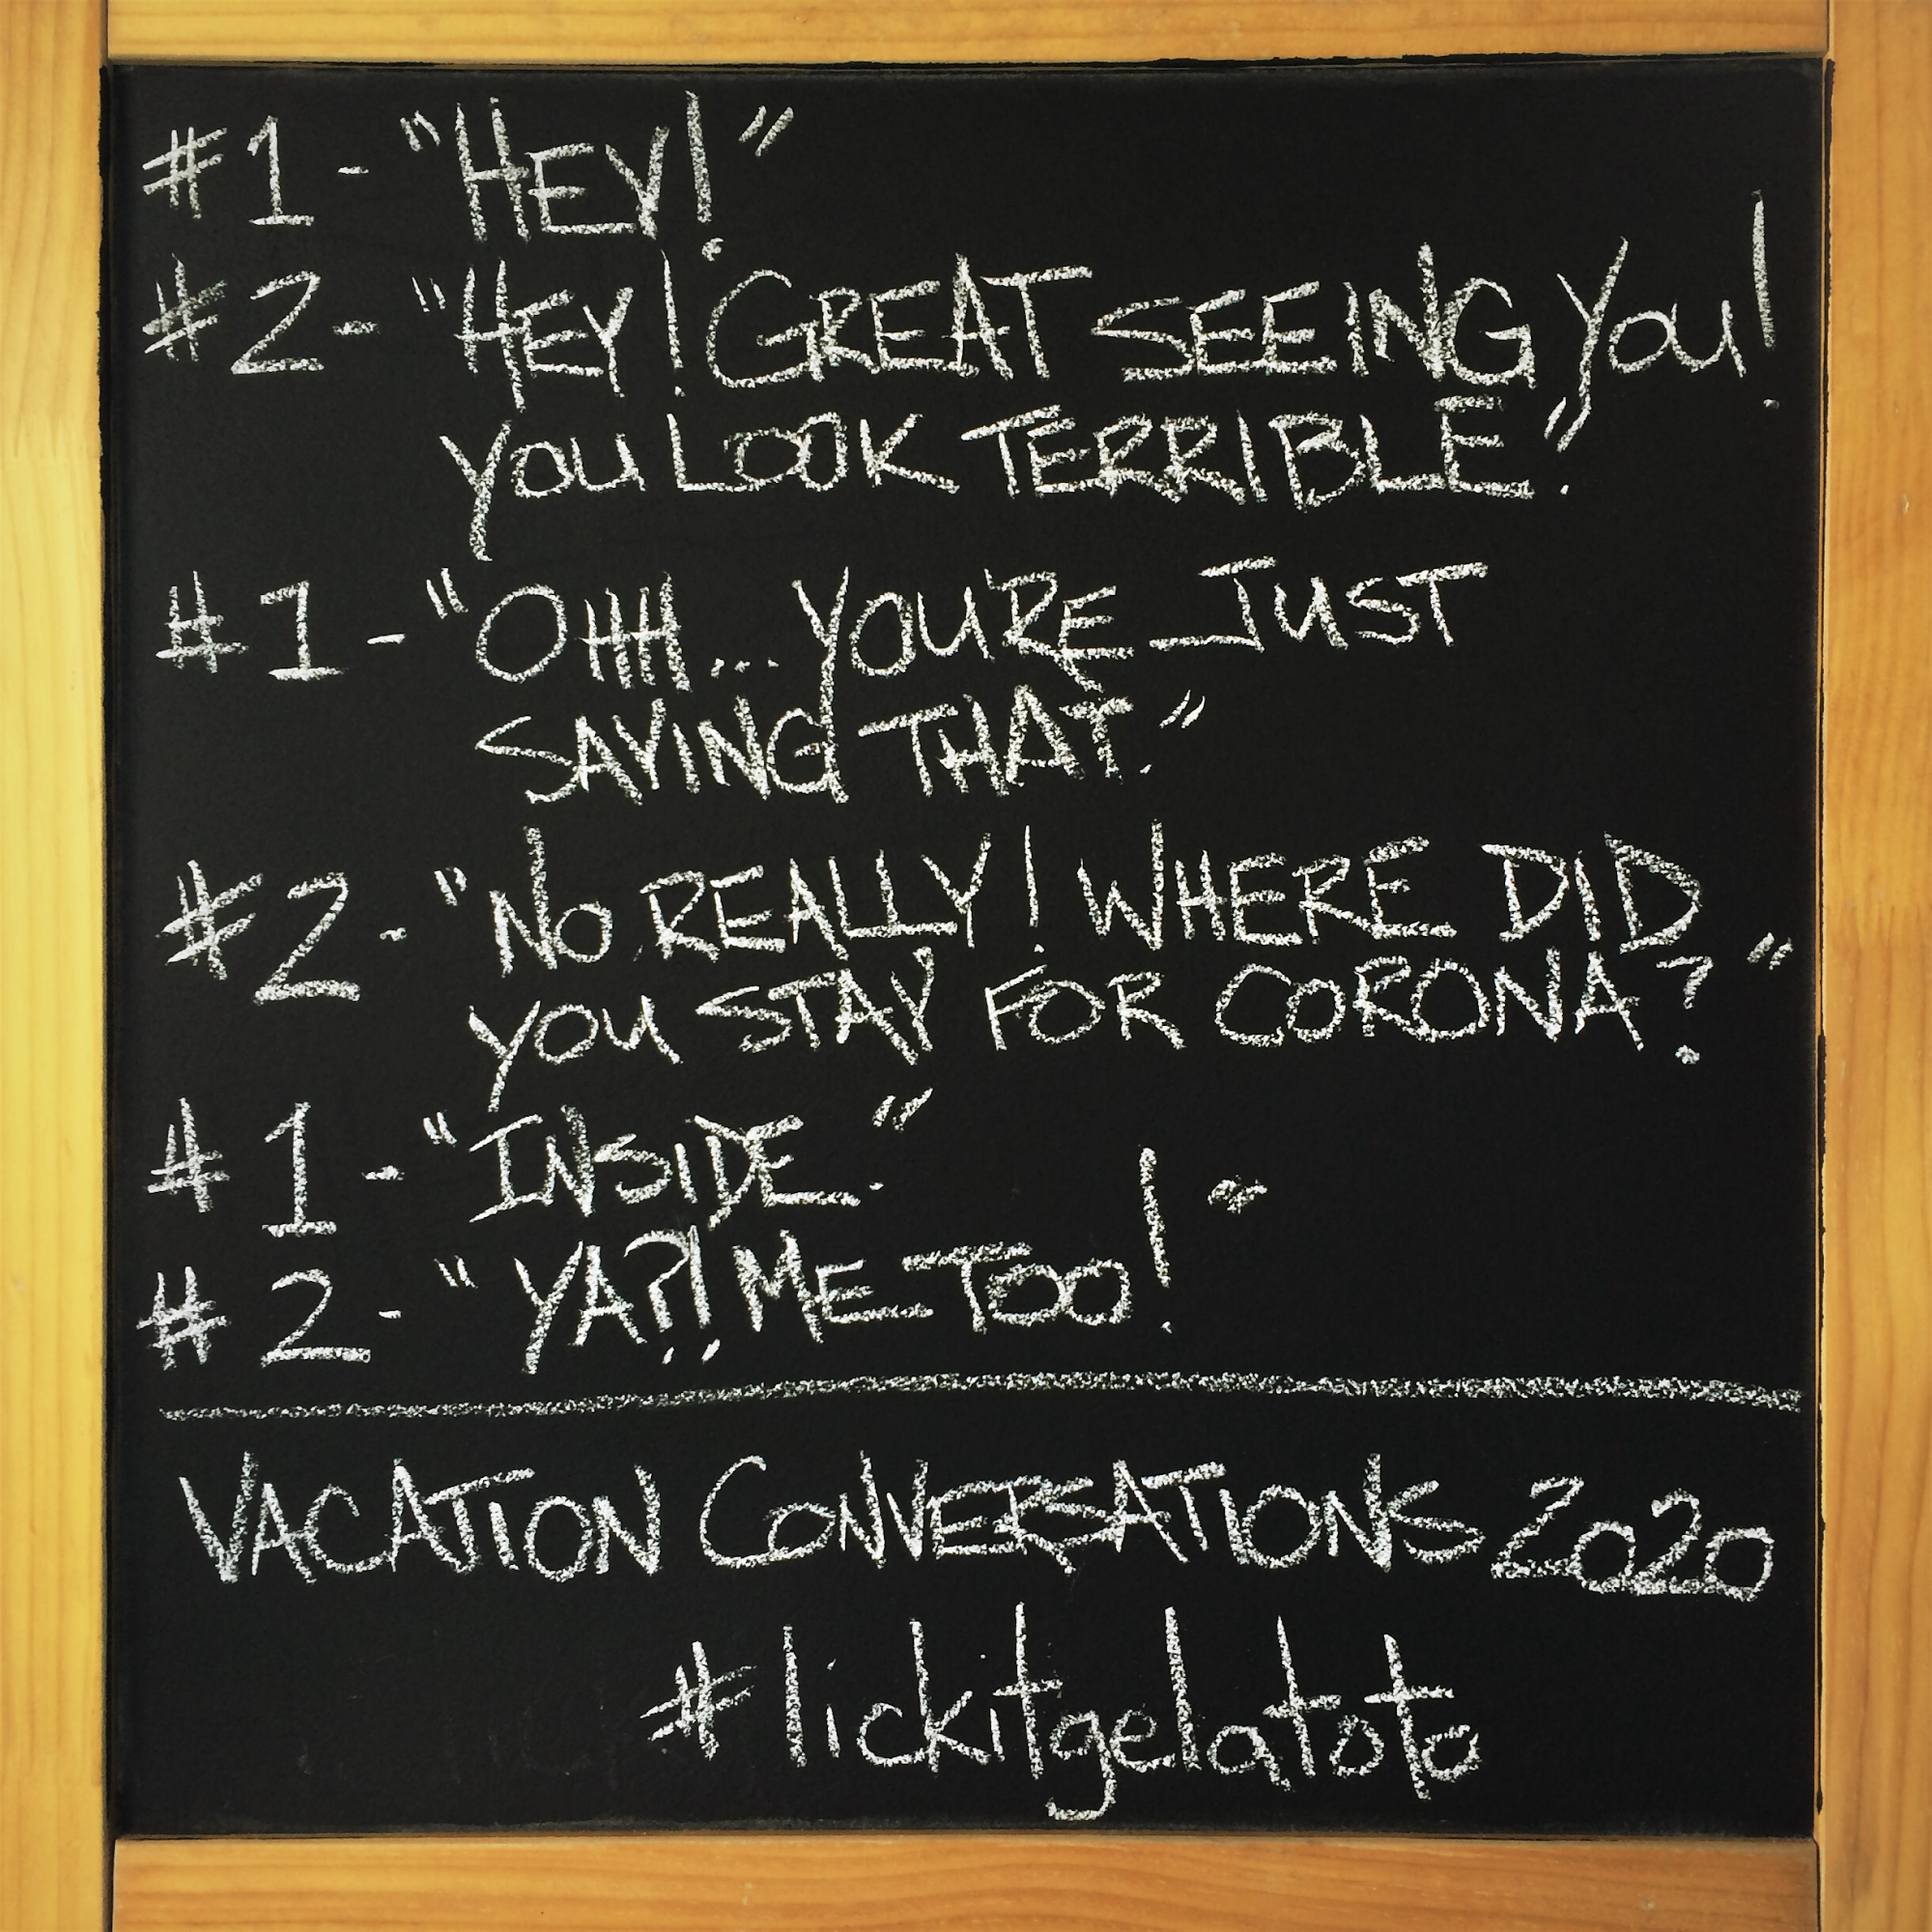 #1 - "HEY!"
#2 - "HEY! GREAT SEEING YOU!
YOU LOOK TERRIBLE."
#1 - "OHH... YOU'RE JUST
SAYING THAT."
#2 - "NO REALLY! WHERE DID
YOU STAY FOR CORONA?"
#1 - "INSIDE."
#2 - "YA?! ME TOO!"
VACATION CONVERSATIONS 2020
#lickitgelatoto